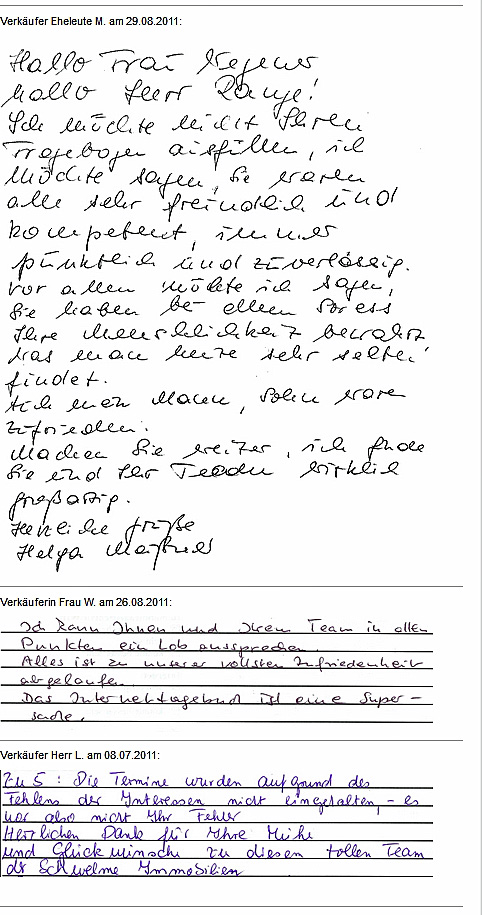 Verkäufer Eheleute M. am 29.08.2011:
Hallo Frau
hallo Herr Runge!
Ich möchte nicht Ihren
Fragebogen ausfüllen, ich
möchte sagen, Sie waren
alle sehr freundlich und
kompetent, immer
pünktlich und zuverlässig.
Vor allen möchte ich sagen,
Sie haben bei allem Stress
Ihre Menschlichkeit bewahrt
was man heute sehr selten
findet.
Auch mein Mann, Sohn waren
zufrieden.
Machen Sie weiter, ich finde
Sie und Ihr Team wirklich
großartig.
Herzliche Grüße
Helga
Verkäuferin Frau W. am 26.08.2011:
Ich kann Ihnen und Ihrem Team in allen
Punkten ein Lob aussprechen.
Alles ist zu unserer vollsten Zufriedenheit
abgelaufen.
Das Internettagebuch ist eine Super-
sache.
Verkäufer Herr L. am 08.07.2011:
Zu 5: Die Termine wurden aufgrund des
Fehlens der Interessen nicht eingehalten, - es
war also nicht Ihr Fehler
Herzlichen Dank für Ihre Mühe
und Glückwünsche zu diesem tollen Team
der Schwelme Immobilien